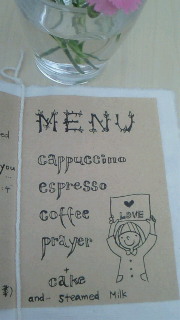 MENU
cappuccino
espresso
coffee
prayer
+
cake
and- steamed Milk
LOVE
you